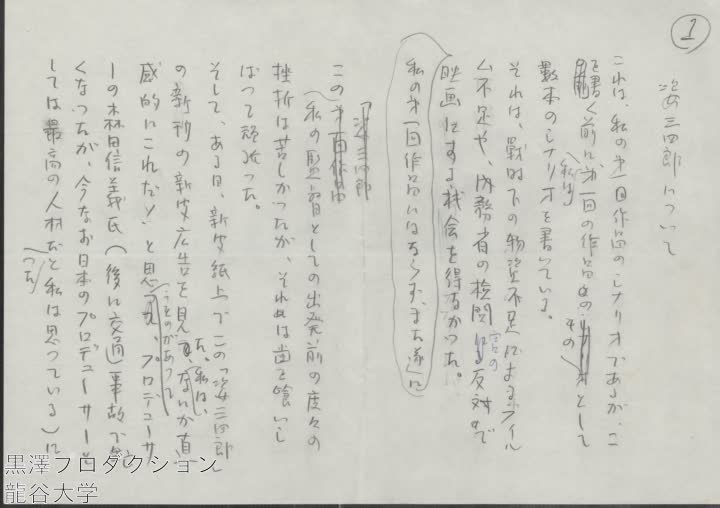 1
姿三四郎について
これは、私の第一回作品のシナリオであるが、こ
を書く前に、第一回の作品のそのつもりとして
私は
数本のシナリオを書いている。
それは、戦時下の物資不足によるフイル
ム不足や、内務省の検閲官の反対で
映画にする機会を得なかった。
私の第一回作品にはならず、また遂に
「姿三四郎
この第一回作品
私の監督としての出発前の度々の
挫折は苦しかったが、それは歯を喰いし
ばって頑張った。
そして、ある日、新聞紙上でこの「姿三四郎」
の新刊の新聞広告を見た。私はい
感的にこれだ！と思い、プロデューサ
ーの森田信義氏（後に交通事故で
くなったが、今なお日本のプロデューサーと
しては最高の人材だと私は思っている）に
つた
黒澤プロダクション
龍谷大学